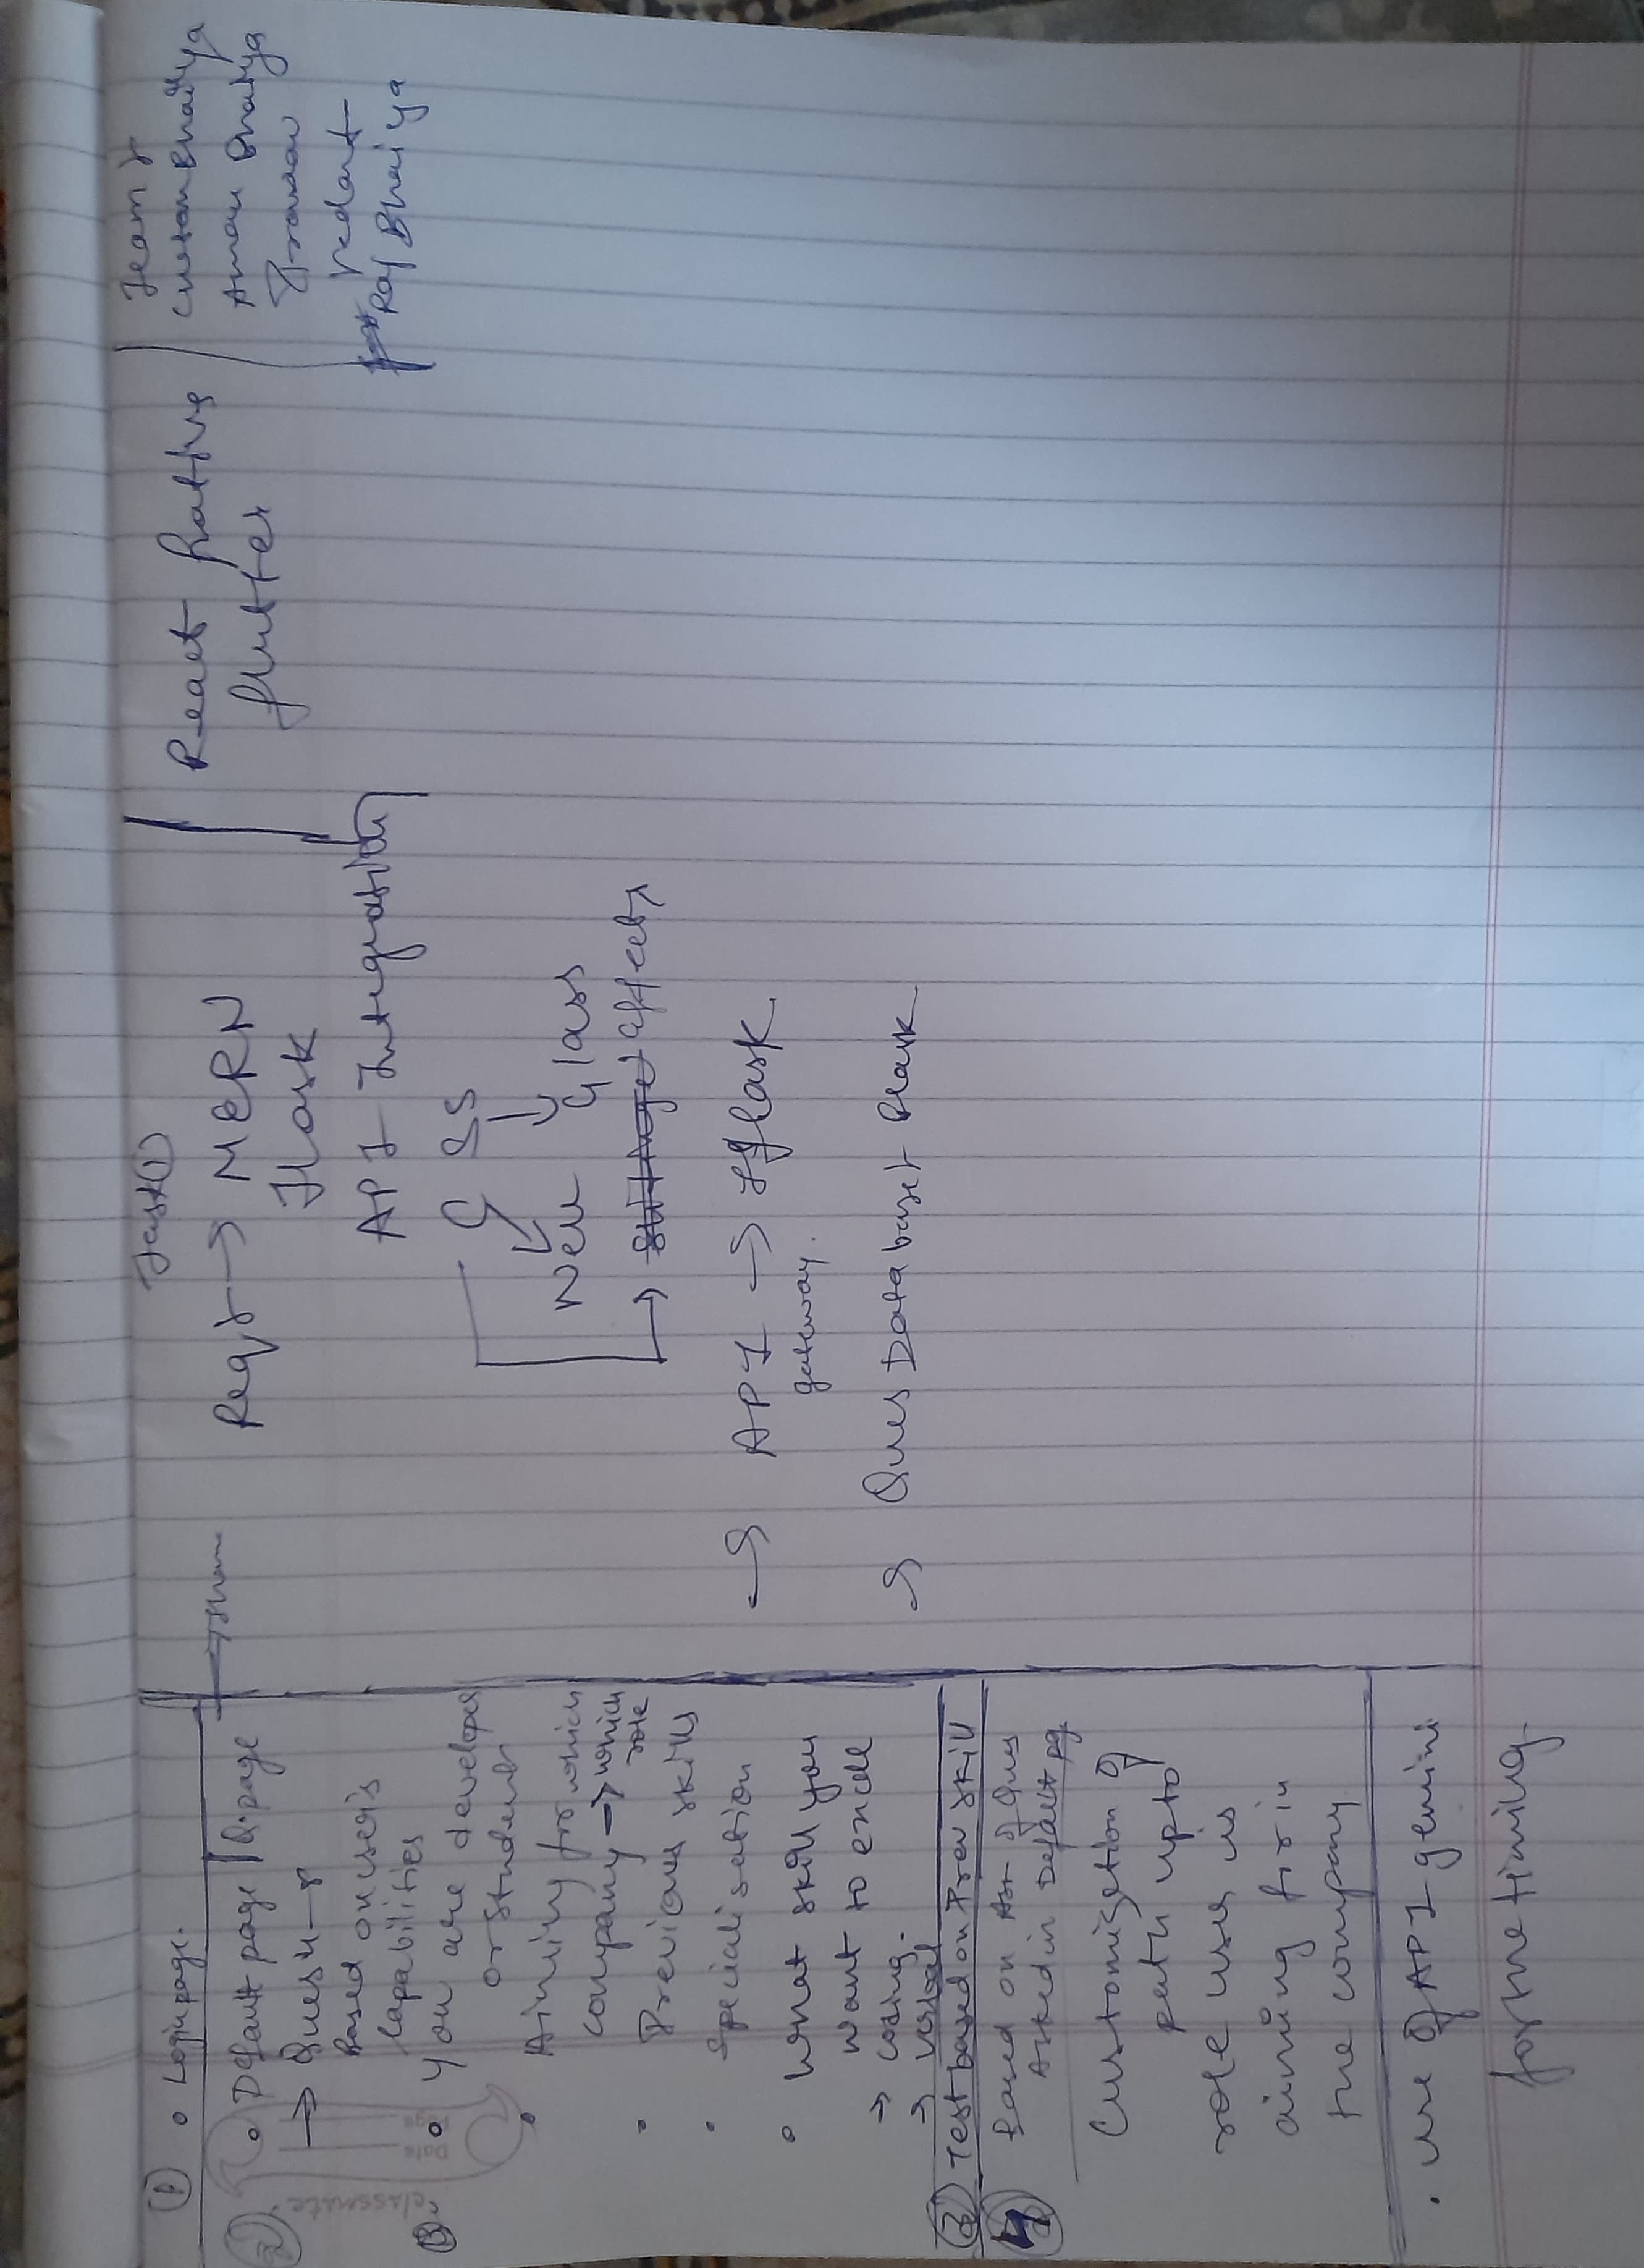 ① • Login page.
② • Default page | Q. page
→ Ques 4-8
Based on user's
Capabilities
• You are developer
or student
• Aiming for which
company → which
role
• Previous skills
• Specialisation
• What skill you
want to excell
→ Coding.
→ Verbal
③ Test based on Prev skill
4 Based on of Ques
Asked in Default pg
Customization of
path upto
role user is
aiming for in
the company
• Use of API gemini
for the timing
①
→ MERN
Flask
API Integration
C SS
Neu Glass
→ Effects
→ API → Flask
gateway.
→ Ques Database
React Native
flutter
Team
Bhaiya
Aman Bhaiya
Vedant
Raj Bhaiya
classmate
Date
Page